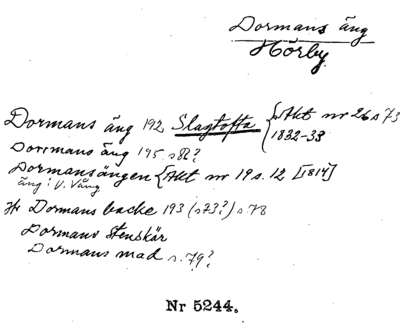 Dormans äng
Hörby
Dormans äng 192 Slagtofta {Akt nr 26 s 73
1832-33
Dorrmans äng 195 s 82?
Dormansängen {Akt nr 19 s. 12 [1814]
äng: V. Vång
Hr Dormans backe 193 (s73?) s. 78
Dormans Stenskär
Dormans mad s. 79?
Nr 5244.